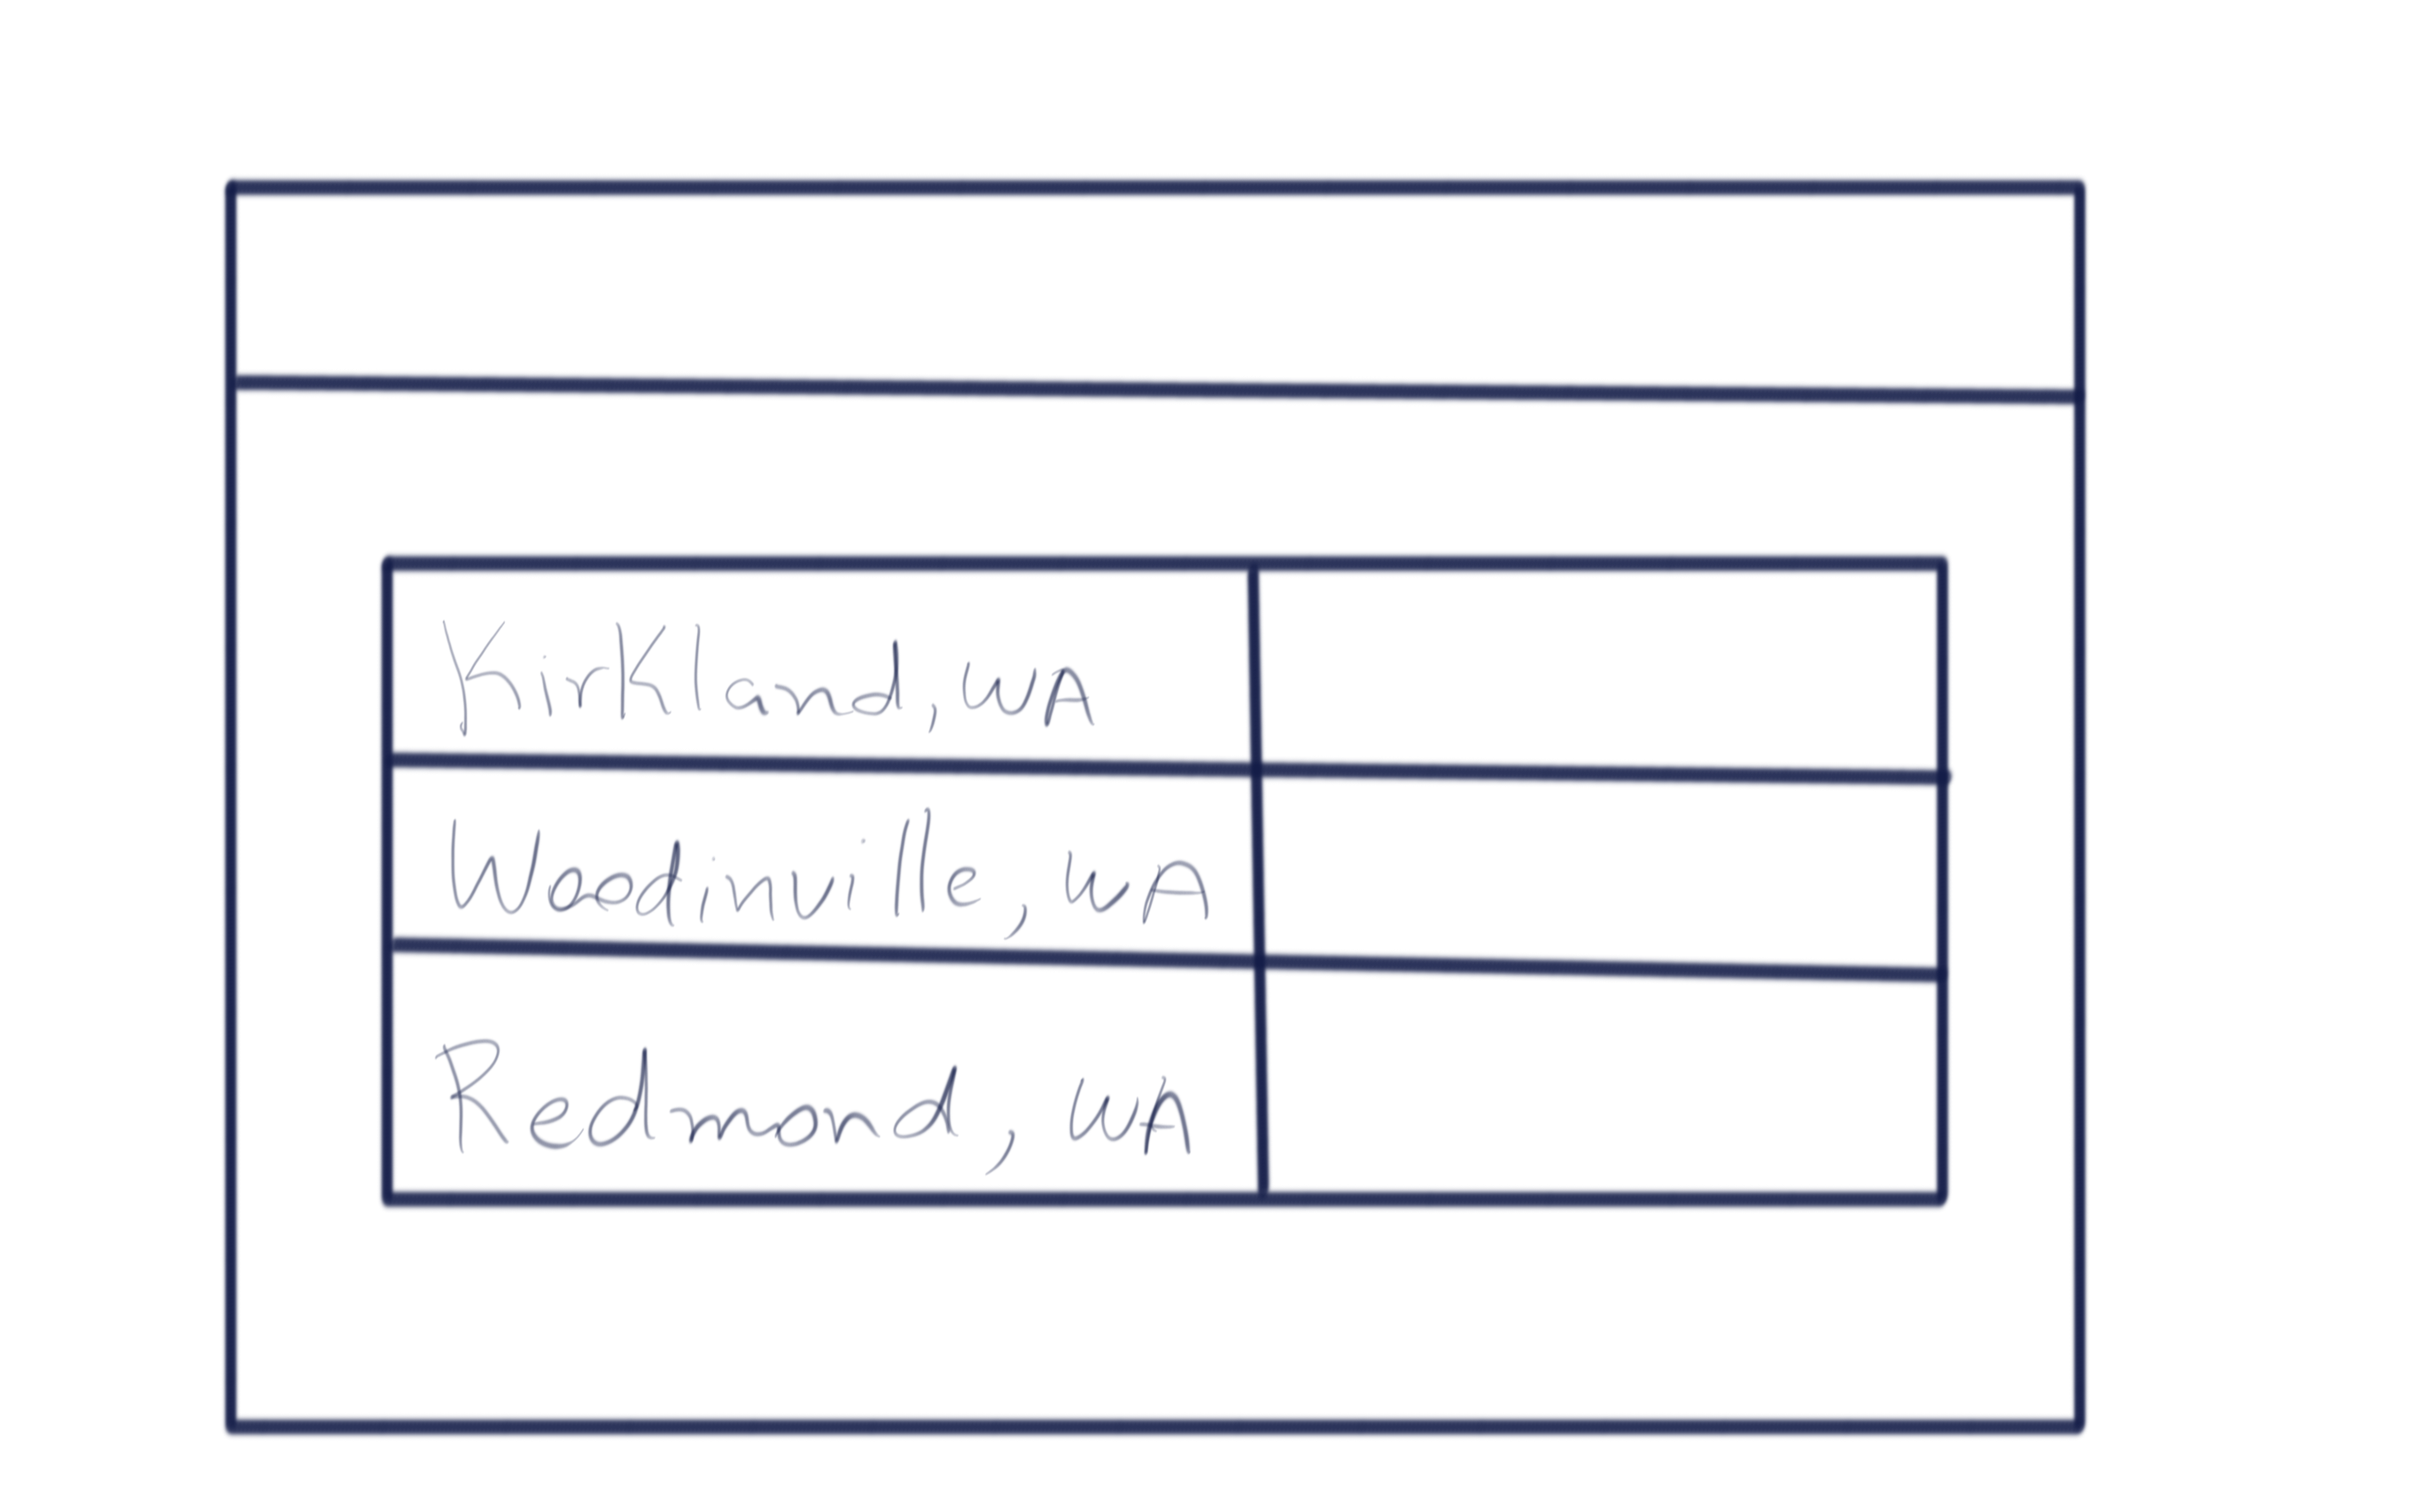 Kirkland, WA
Woodinville, WA
Redmond, WA